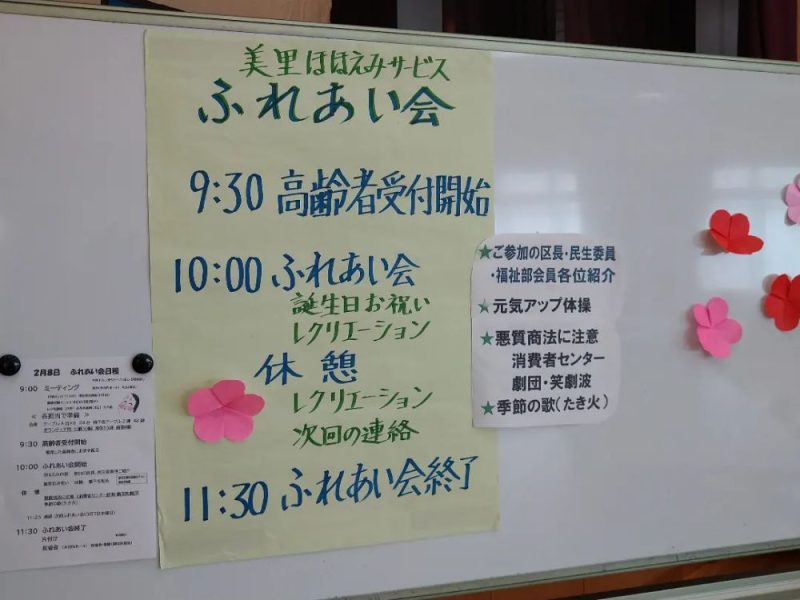 美里ほほえみサービス
ふれあい会
9:30 高齢者受付開始
10:00 ふれあい会
誕生日お祝い
レクリエーション
休憩
レクリエーション
次回の連絡
11:30 ふれあい会終了
★ご参加の区長・民生委員
・福祉部会員各位紹介
★元気アップ体操
★悪質商法に注意
消費者センター
劇団・笑劇波
★季節の歌(たき火)
2月8日 ふれあい会日程
9:00 ミーティング
9:30 高齢者受付開始
10:00 ふれあい会開始
11:30 ふれあい会終了
片付け